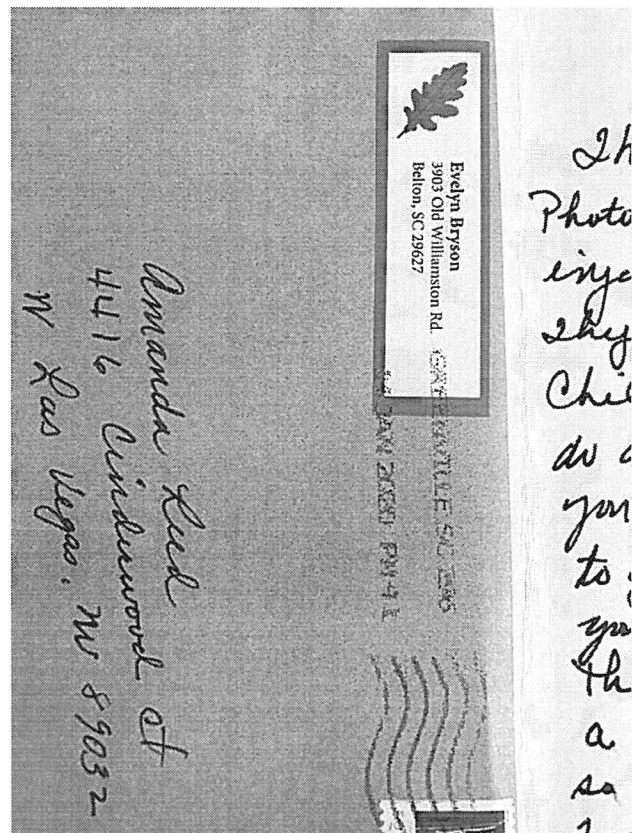 Evelyn Bryson
3903 Old Williamston Rd.
Belton, SC 29627
GREENVILLE SC 296
JAN 2020 PM 4 L
Amanda Reed
4416 Cinderwood Ct
N Las Vegas, NV 89032
Th
Photo
enjo
They
Chil
do
you
to
you
th
a
so